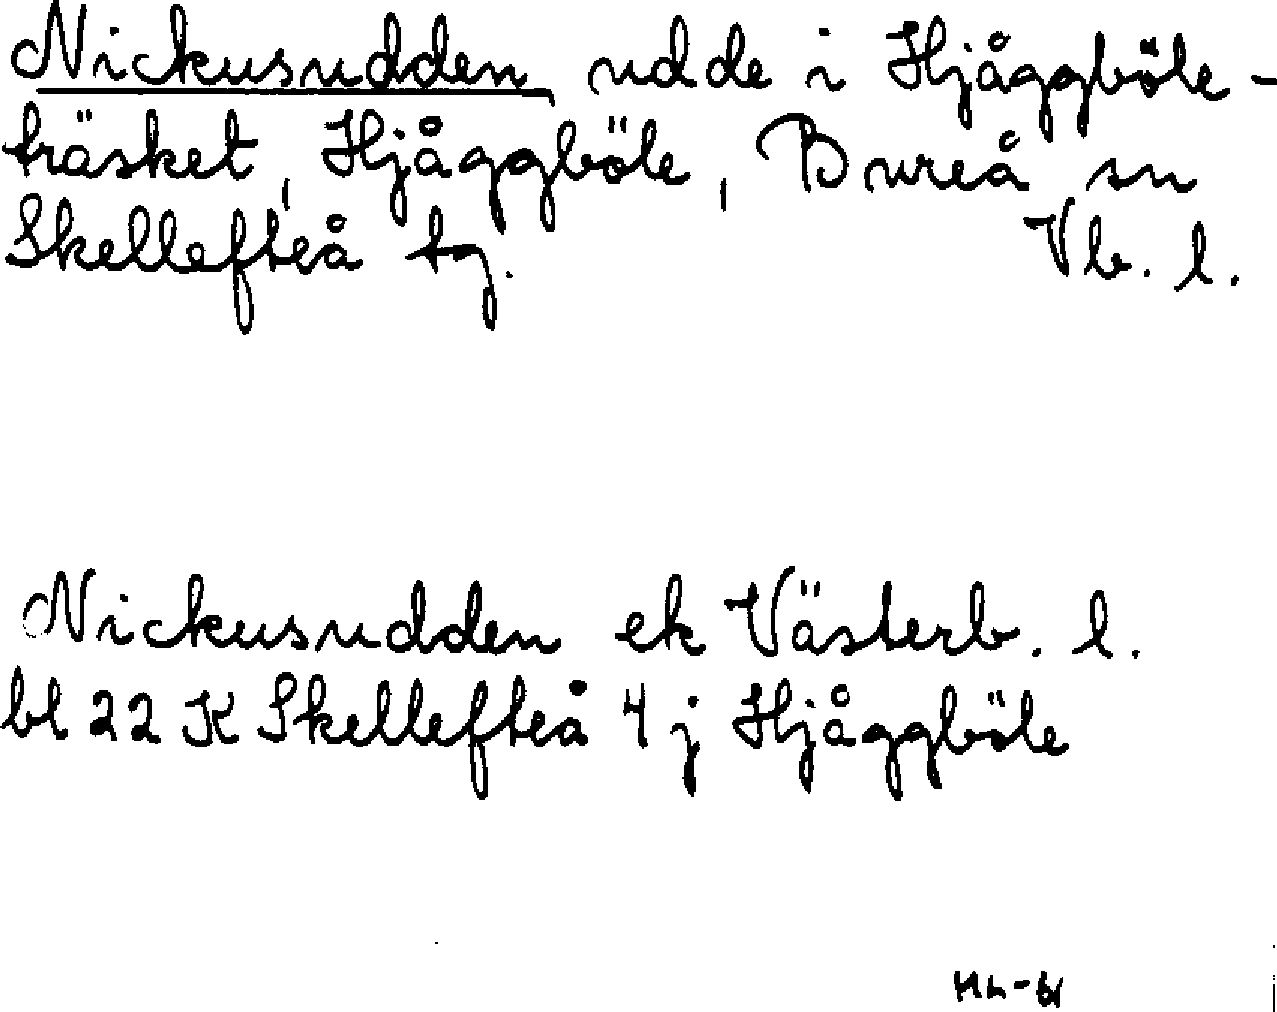 Nickusudden udde i Hjåggböle-
träsket, Hjåggböle, Bureå sn
Skellefteå tg. Vb. l.
Nickusudden ek Västerb. l.
bl 22 K Skellefteå 4 j Hjåggböle